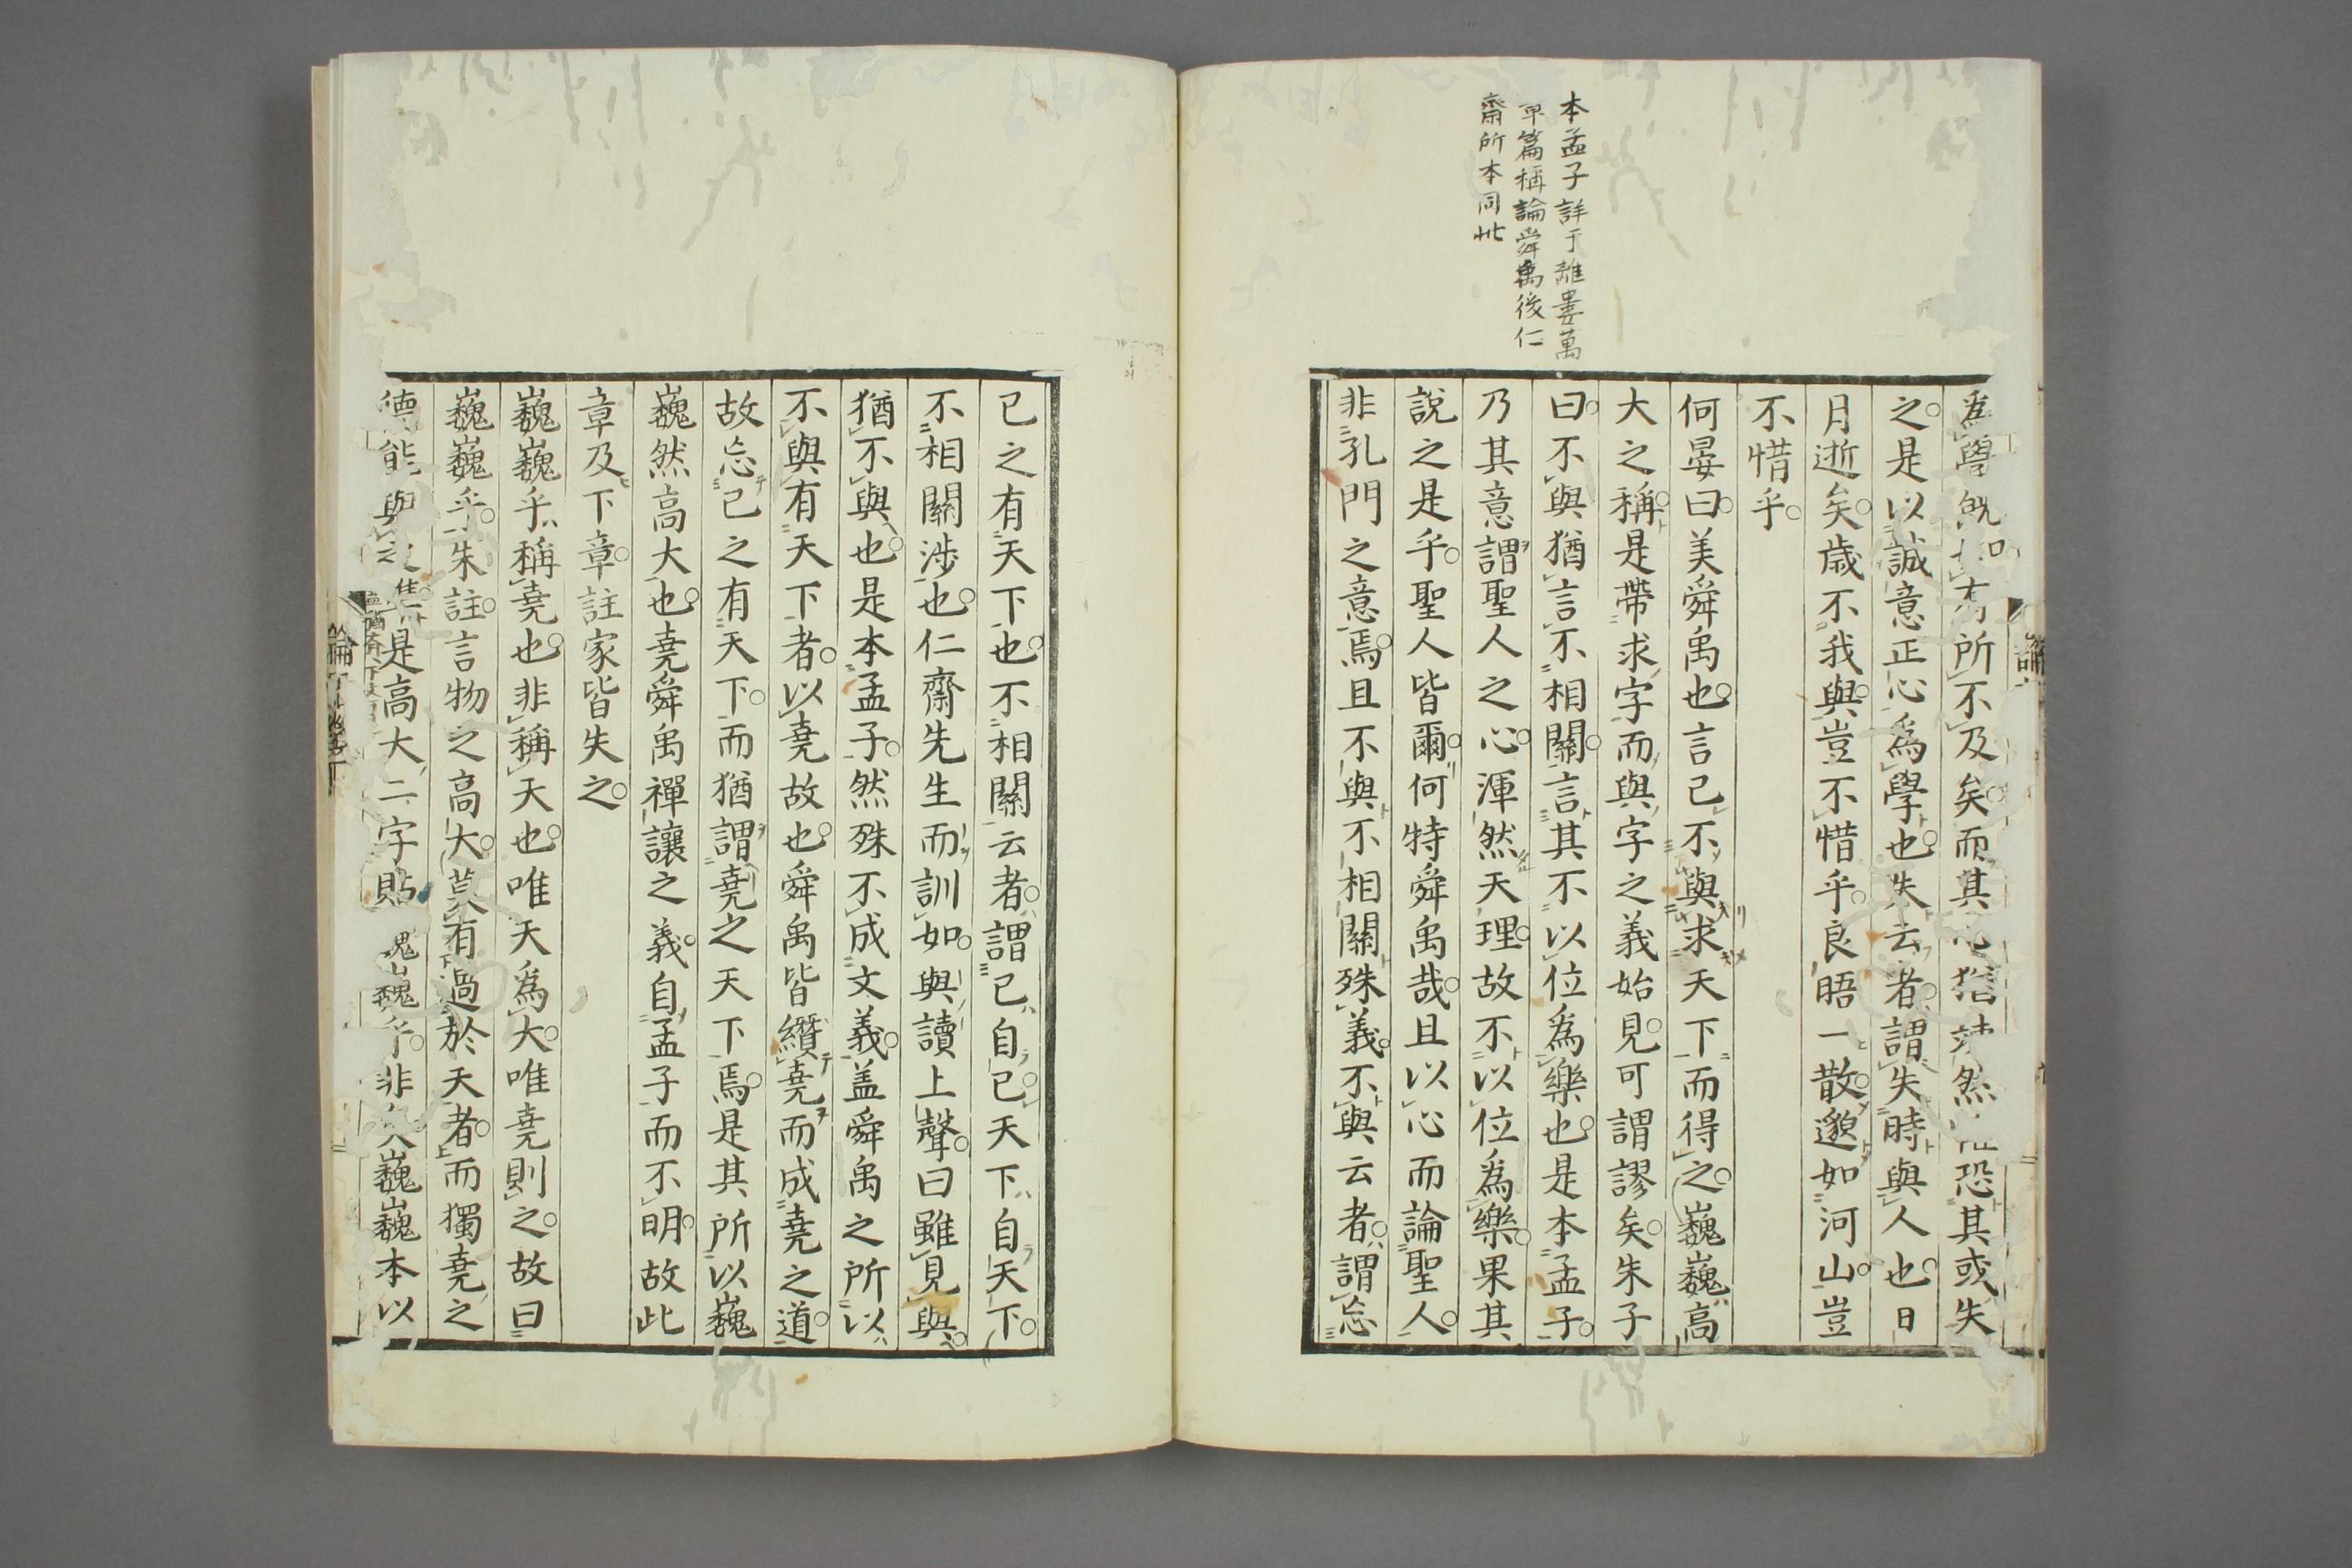 本孟子詳于離婁萬
章篇稱論舜禹後仁
齋所本同此
爲學既如有所不及矣而其心猶竦然惟恐其或失
之是以誠意正心爲學也失去者謂失時與人也日
月逝矣歳不我與豈不惜乎良晤一散邈如河山豈
不惜乎
何晏曰美舜禹也言己不與求天下而得之巍巍高
大之稱是帶求字而與字之義始見可謂謬矣朱子
曰不與猶言不相關言其不以位爲樂也是本孟子
乃其意謂聖人之心渾然天理故不以位爲樂果其
說之是乎聖人皆爾何特舜禹哉且以心而論聖人
非孔門之意焉且不與不相關殊義不與云者謂忘
己之有天下也不相關云者謂己自己天下自天下
不相關渉也仁齋先生而訓如與讀上聲曰雖見與
猶不與也是本孟子然殊不成文義盖舜禹之所以
不與有天下者以堯故也舜禹皆纘堯而成堯之道
故忘己之有天下而猶謂堯之天下焉是其所以巍
巍然高大也堯舜禹禪讓之義自孟子而不明故此
章及下章註家皆失之
巍巍乎稱堯也非稱天也唯天爲大唯堯則之故曰
巍巍乎朱註言物之高大莫有過於天者而獨堯之
德能與之準是高大二字貼巍巍乎非矣巍巍本以